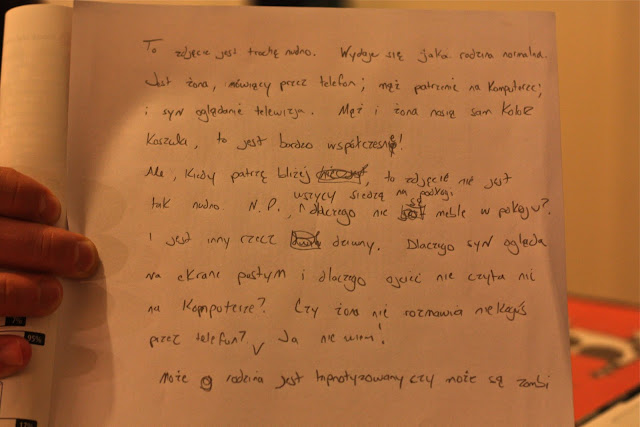 To zdjęcie jest trochę nudno. Wydaje się jaka rodzina normalna.
Jest żona, mówiący przez telefon; mąż patrzenie na komputerze;
i syn oglądanie telewizja. Mąż i żona noszą sam kolor
koszula, to jest bardzo współcześnie!
Ale, kiedy patrzę bliżej, to zdjęcie nie jest
wszycy siedzą na podłogi
tak nudno. N.P., dlaczego nie są meble w pokoju?
I jest inny rzecz dziwny. Dlaczego syn ogląda
na ekranie pustym i dlaczego ojciec nie czyta nić
na komputerze? Czy żona nie rozmawia niekogoś
przez telefon? Ja nie wiem!
Może rodzina jest hipnotyzowany czy może są zombi
95%